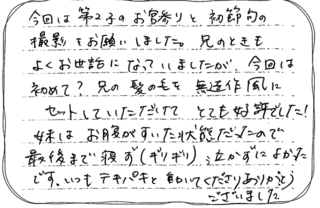 今回は第2子のお宮参りと初節句の
撮影をお願いしました。兄のときも
よくお世話になっていましたが、今回は
初めて?兄の髪の毛を無造作風に
セットしていただけて とても好評でした!
妹は お腹がすいた状態だったので
最後まで寝ず(ギリギリ)泣かずによかった
です。いつもテキパキと動いてくださりありがとう
ございました